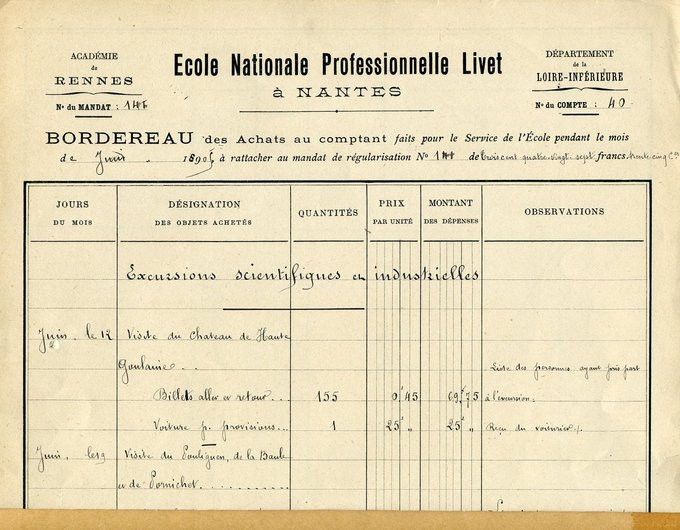 ACADÉMIE
de
RENNES
No du MANDAT :
Ecole Nationale Professionnelle Livet
à NANTES
DÉPARTEMENT
de la
LOIRE-INFÉRIEURE
No du COMPTE : 40
BORDEREAU des Achats au comptant faits pour le Service de l'École pendant le mois
de Juin 1890 à rattacher au mandat de régularisation No de trois cent quatre-vingt-sept francs trente cinq Ces
JOURS DU MOIS
DÉSIGNATION DES OBJETS ACHETÉS
QUANTITÉS
PRIX PAR UNITÉ
MONTANT DES DÉPENSES
OBSERVATIONS
Excursions scientifiques et industrielles
Juin, le 12 Visite du Chateau de Haute
Goulaine ..
Liste des personnes ayant pris part
Billets aller et retour . . 155 0,45 69,75 à l'excursion.
Voiture p. provisions... 1 25 " 25 " Reçu du voiturier.
Juin, le 19 Visite du Pouliguen, de la Baule
et de Pornichet..........